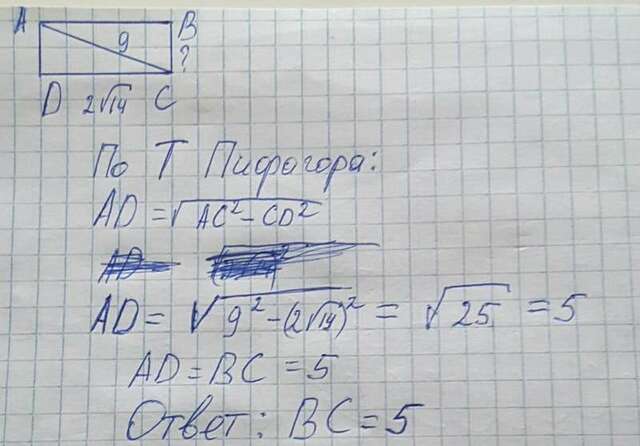 A B
9
?
D 2√14 C
По Т Пифагора:
AD = √AC² - CD²
AD = √9² - (2√14)² = √25 = 5
AD = BC = 5
Ответ: BC = 5